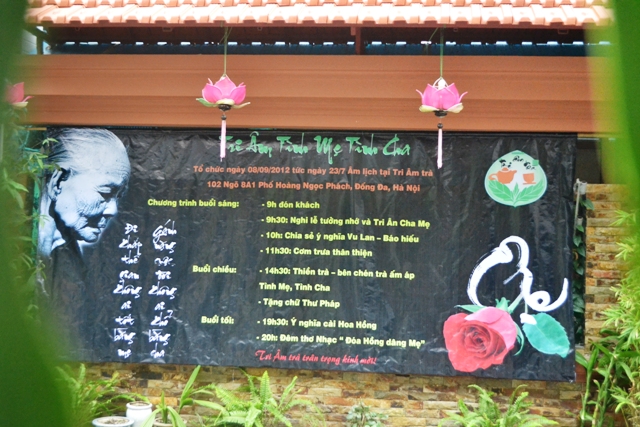 Tri Âm Tình Mẹ Tình Cha
Tổ chức ngày 08/09/2012 tức ngày 23/7 Âm lịch tại Tri Âm trà
102 Ngõ 8A1 Phố Hoàng Ngọc Phách, Đống Đa, Hà Nội
Chương trình buổi sáng: - 9h đón khách
- 9h30: Nghi lễ tưởng nhớ và Tri Ân Cha Mẹ
- 10h: Chia sẻ ý nghĩa Vu Lan – Báo hiếu
- 11h30: Cơm trưa thân thiện
Buổi chiều: - 14h30: Thiền trà – bên chén trà ấm áp
Tình Mẹ, Tình Cha
- Tặng chữ Thư Pháp
Buổi tối: - 19h30: Ý nghĩa cài Hoa Hồng
- 20h: Đêm thơ Nhạc “ Đóa Hồng dâng Mẹ”
Tri Âm trà trân trọng kính mời!
Gánh
nặng
không
ai
khổ
bằng
cha
Đi
khắp
thế
gian
không
ai
tốt
bằng
mẹ